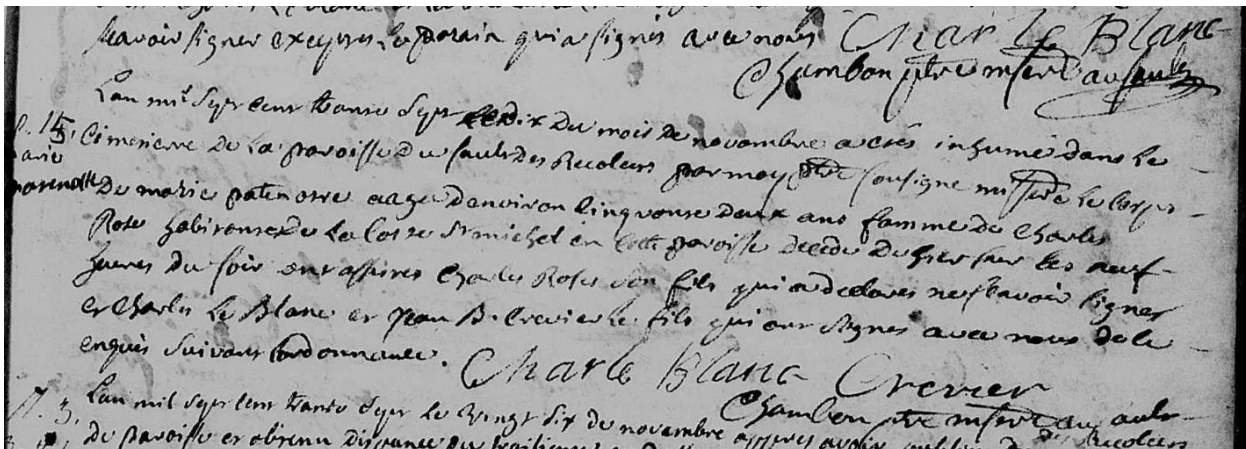 scavoir signer exceptes Le parain qui a signes avec nous Char le Blanc
Chambon ptre miss.re au sault
Lan mil Sept cent trante Sept Le dix du mois de novembre a etes inhumé dans Le
S. 15. Cimetierre de La paroisse du saults des Recolets par moy ptre sousigne miss.re Le Corps
marie De marie patenotre aagé denviron Cinquante deux ans famme de Charles
patenotte Rose habitante de La Coste St michel en Cette paroisse decede du hier sur Les neuf
heures du soir ont assistes Charles Rose son fils qui a declares ne scavoir signer
et Charles Le Blanc et jean B. Crevier Le fils qui ont Signes avec nous de Le
enquis Suivant Lordonnance. Charle Blanc Crevier
Chambon ptre miss.re au sault des Recolets
Lan mil Sept cent trante Sept Le Vingt Six de novembre appres avoir publies
de paroisse et obtenu dispance